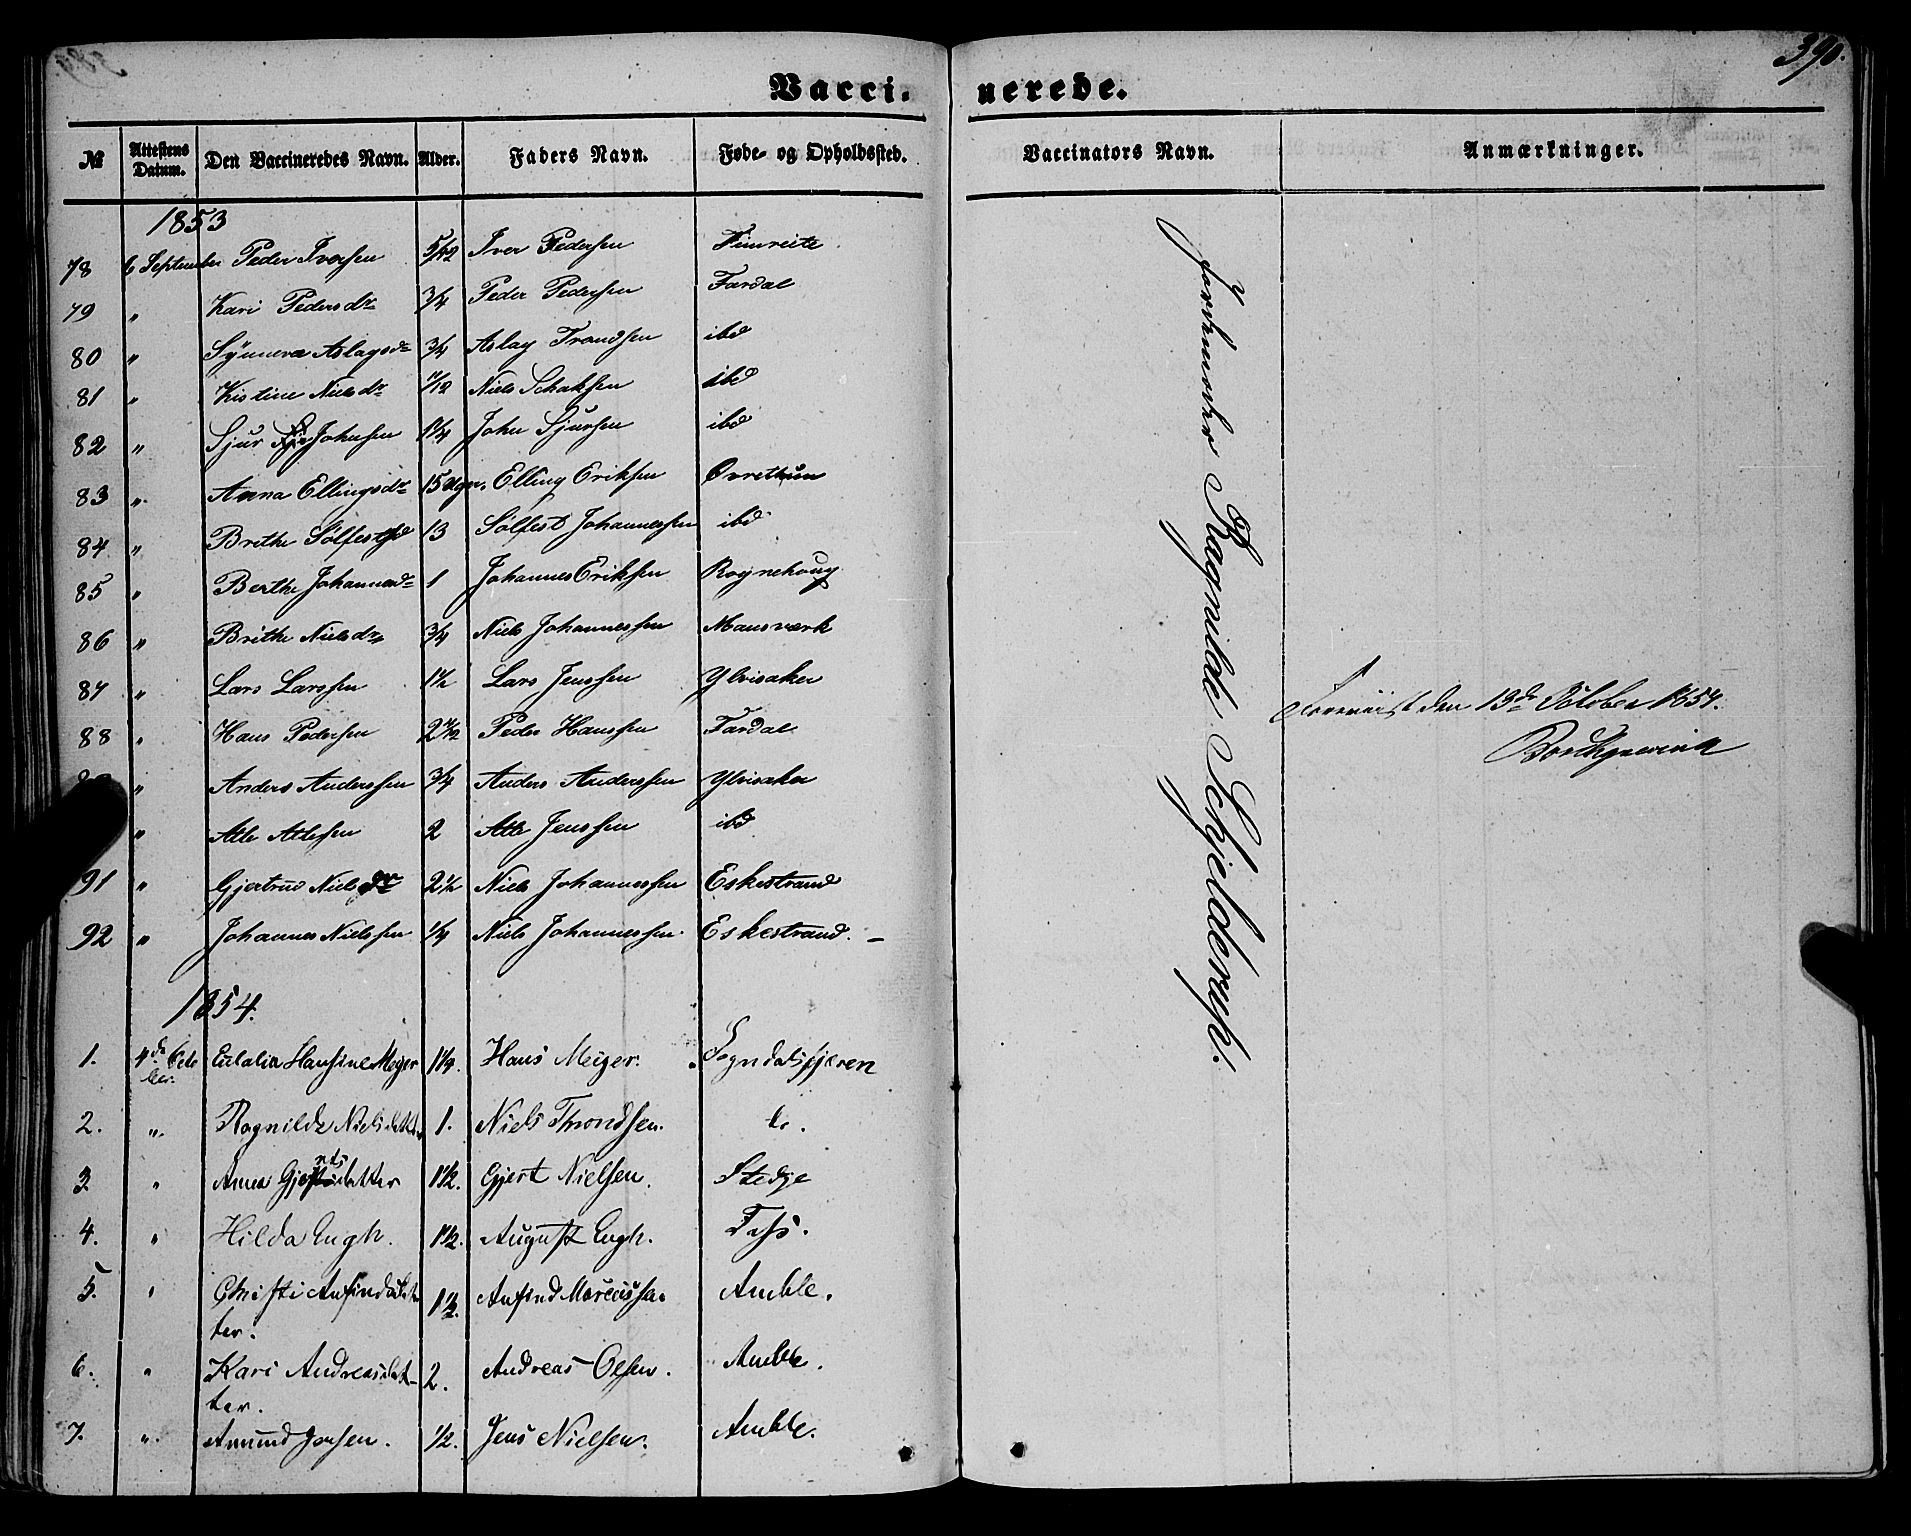 390.
Vacci- nerede.
№ Attestens Datum. Den Vaccineredes Navn. Alder. Faders Navn. Føde- og Opholdssted. Vaccinators Navn. Anmærkninger.
1853
78 6 September Peder Iversen 5/12 Iver Pedersen Fimreite
79 " Kari Pedersdr 3/4 Peder Pedersen Fardal
80 " Synneva Aslagsdr 3/4 Aslag Trondsen ibd
81 " Kistine Nielsdr 7/12 Niels Schaksen ibd
82 " Sjur Johnsen 1 1/4 John Sjursen ibd
83 " Anna Ellingsdr 15 Uger. Elling Eriksen Ovrethun
84 " Brithe Sølfestsd 13 Sølfest Johannessen ibd
85 " Berthe Johannesdr 1 Johannes Eriksen Rognehoug
86 " Brithe Nielsdr 3/4 Niels Johannessen Mansværk
87 " Lars Larssen 1 1/2 Lars Jenssen Ylvisaker
88 " Hans Pedersen Peder Hanssen Fardal
" Anders Anderssen 3/4 Anders Anderssen Ylvisaker
" Atle Atlesen 2 Atle Jenssen ibd
91 " Gjertrud Nielsdr 2 1/2 Niels Johannessen Eskestrand
92 " Johannes Nielssen 1/4 Niels Johannessen Eskestrand. –
Jordemoder Ragnilde Schjelderup.
1854.
1. 4de Octo Eulalia Hansine Meyer 1 1/4. Hans Meyer. Sogndalsfjæren
ber.
2. ". Ragnilde Nielsdatter 1. Niels Throndsen. do.
3 " Anna Gjertsdatter 1 1/2. Gjert Nielsen. Stedje
4. " Hilda Engh. 1 1/2. August Engh. Foss.
5. " Christi Anfindsdat- 1 1/2. Anfind Marcussen Amble.
ter.
6. " Kari Andreasdat- 2. Andreas Olsen. Amble.
ter.
7. ". Amund Jensen. 1/2. Jens Nielsen. Amble.
Foreviist den 13de October 1854.
Borchgrevink